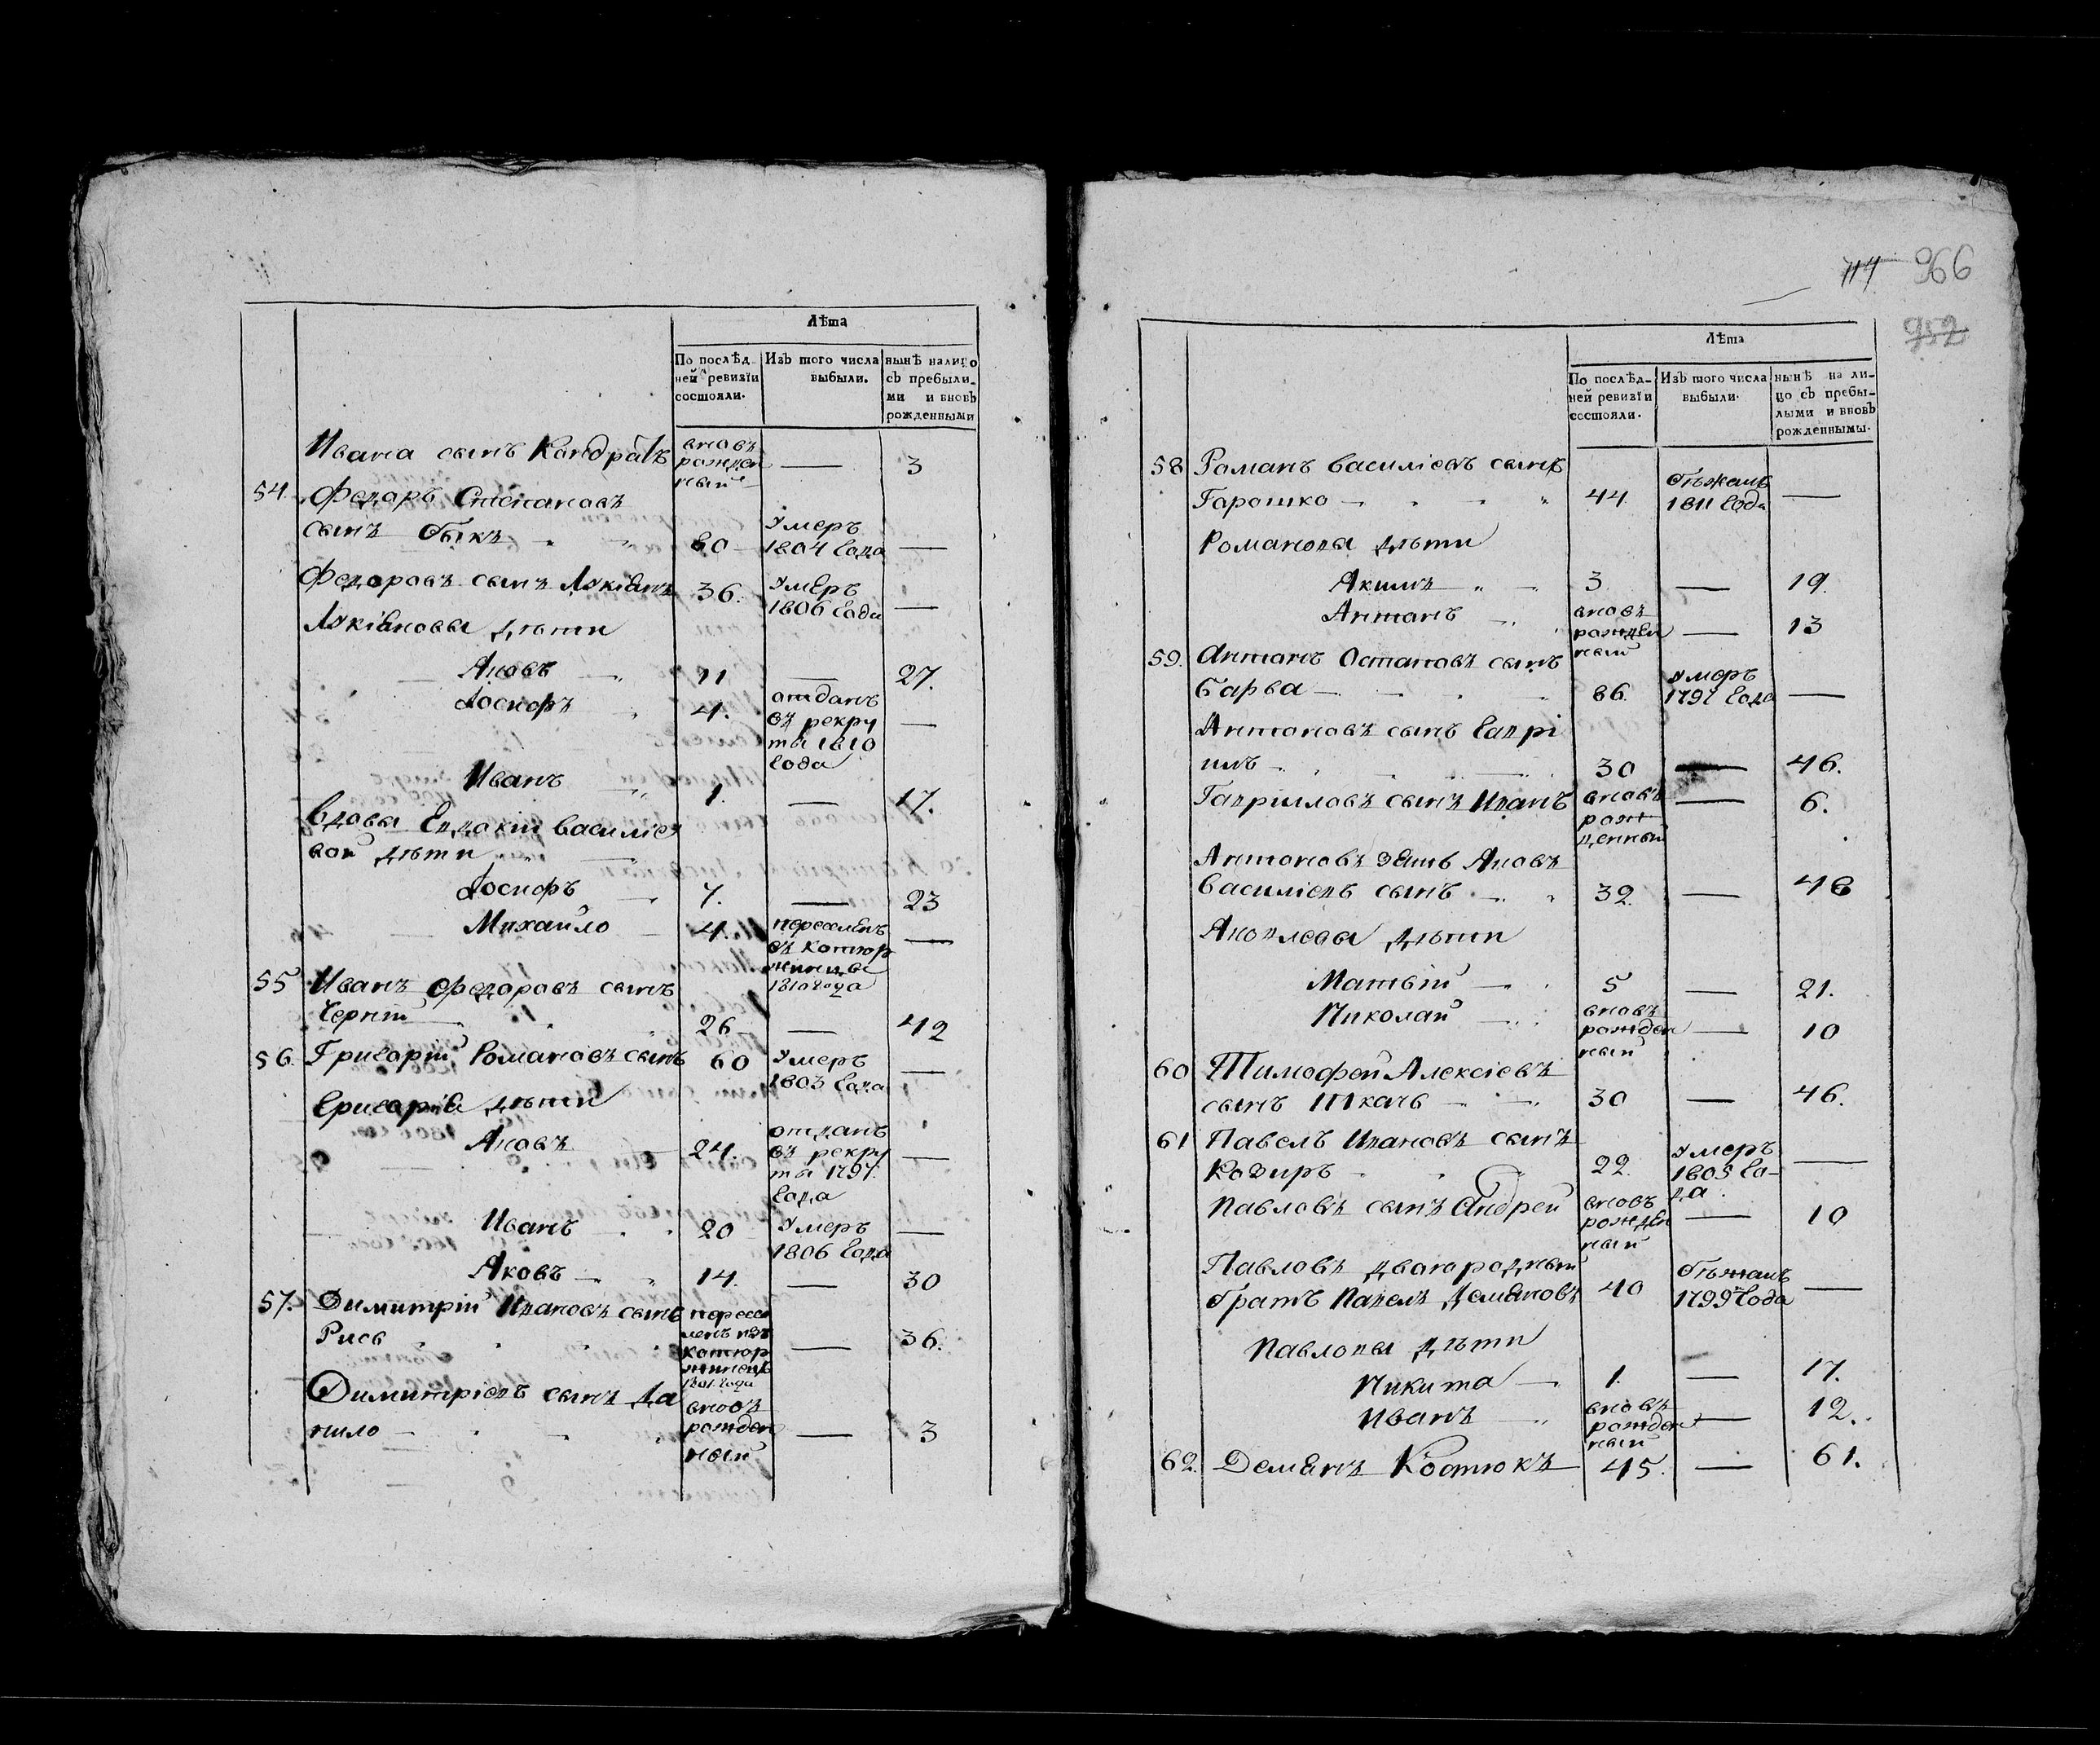 Лѣта
По послѣд-
ней ревизїи
состояли.
Изъ того числа
выбыли.
нынѣ налицо
съ пребыли-
ми и вновь
рожденными
Ивана сынъ Кондратъ
вновь
рожден
ный
— 3
54. Федоръ Степановъ
сынъ Быкъ 60
умеръ
1804 года —
Федоровъ сынъ Лукіянъ 36.
умеръ
1806 года —
Лукіяновы дѣти
Яковъ 11 — 27.
Іосифъ 4.
отданъ
въ рекру
ты 1810
года
—
Иванъ 1. — 17.
Вдовы Евдокіи Василіе
вой дѣти
Іосифъ 7. — 23
Михайло 4.
переселенъ
въ
1810 года
—
55 Иванъ Федоровъ сынъ
Черній 26 — 42
56. Григорій Романовъ сынъ 60
умеръ
1803 года —
Григорія дѣти
Яковъ 24.
отданъ
въ рекру
ты 1797.
года
—
Иванъ 20
умеръ
1806 года —
Яковъ 14. — 30
57. Димитрій Ивановъ сынъ
Рись
пересе
ленъ изъ
1801 года
— 36.
Димитріевъ сынъ Да
нило
вновь
рожден
ный
— 3
114 966
952
Лѣта
По послѣд-
ней ревизїи
состояли.
Изъ того числа
выбыли.
нынѣ на ли-
цо съ пребы-
лыми и вновь
рожденными.
58 Романъ Василіевъ сынъ
Горошко 44
бѣжалъ
1811 года —
Романовы дѣти
Акимъ 3. — 19.
Антонъ
вновь
рожден
ный
— 13
59. Антонъ Остаповъ сынъ
Барва 66.
умеръ
1797 года —
Антоновъ сынъ Гаврі
илъ 30 — 46.
Гавриловъ сынъ Иванъ
вновь
рож
денный
— 6.
Антоновъ зять Яковъ
Василіевъ сынъ 32. — 48
Яковлевы дѣти
Матвій 5 — 21.
Николай
вновь
рожден
ный
— 10
60 Тимофей Алексіевъ
сынъ Ткачь 30 — 46.
61 Павелъ Ивановъ сынъ
Козиръ 22.
умеръ
1805 го-
да.
—
Павловъ сынъ Андрей
вновь
рожден
ный
— 10
Павловъ двоюродный
братъ Павелъ Демяновъ 40
бѣжалъ
1799 года —
Павловы дѣти
Никита 1. — 17.
Иванъ
вновь
рожден
ный
— 12.
62. Демянъ Костюкъ 45. — 61.